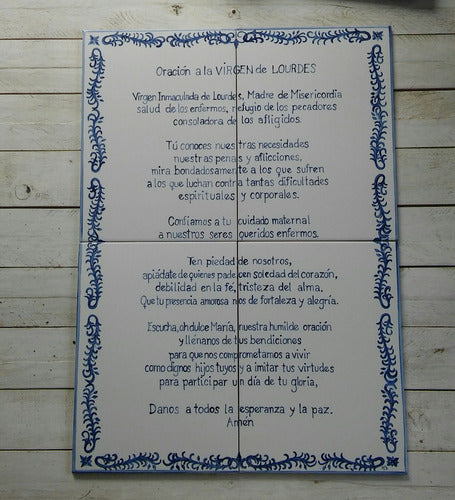 Oración a la VIRGEN de LOURDES
Virgen Inmaculada de Lourdes, Madre de Misericordia
salud de los enfermos, refugio de los pecadores
consoladora de los afligidos.
Tú conoces nuestras necesidades
nuestras penas y aflicciones,
mira bondadosamente a los que sufren
a los que luchan contra tantas dificultades
espirituales y corporales.
Confiamos a tu cuidado maternal
a nuestros seres queridos enfermos.
Ten piedad de nosotros,
apiádate de quienes padecen soledad del corazón,
debilidad en la fé, tristeza del alma.
Que tu presencia amorosa nos de fortaleza y alegría.
Escucha, oh dulce María, nuestra humilde oración
y llénanos de tus bendiciones
para que nos comprometamos a vivir
como dignos hijos tuyos y a imitar tus virtudes
para participar un día de tu gloria,
Danos a todos la esperanza y la paz.
Amén